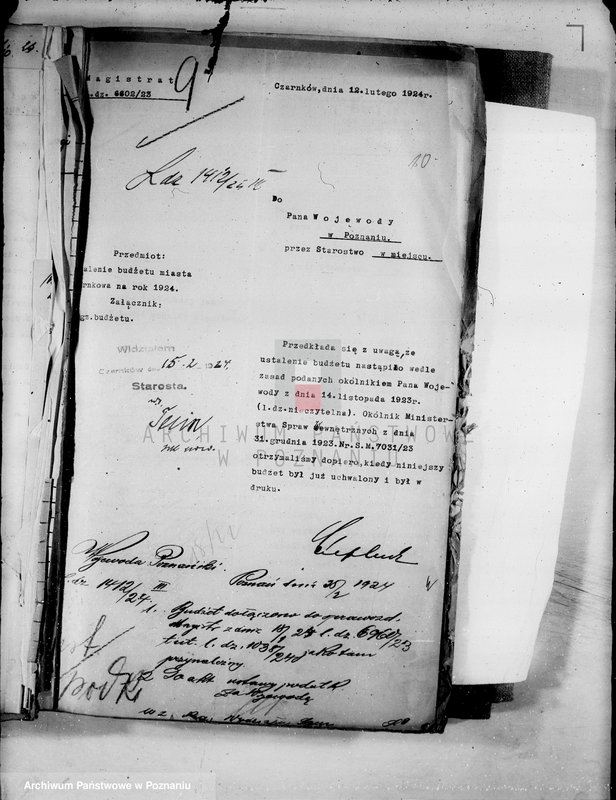 Magistrat
.dz. 6602/23
9
Czarnków, dnia 12. lutego 1924r.
10
Ldz 1412/24 III
Do
Pana Wojewody
w Poznaniu.
przez Starostwo w miejscu.
Przedmiot:
alenie budżetu miasta
rnkowa na rok 1924.
Załącznik:
gz. budżetu.
Widziałem
Czarnków dnia 15.2. 1924.
Starosta.
Przedkłada się z uwagą, że
ustalenie budżetu nastąpiło wedle
zasad podanych okólnikiem Pana Woje-
wody z dnia 14. listopada 1923r
(l.dz. nieczytelna). Okólnik Minister-
stwa Spraw Wewnętrznych z dnia
31. grudnia 1923. Nr. S.M. 7031/23
otrzymaliśmy dopiero, kiedy niniejszy
budżet był już uchwalony i był w
druku.
ARCHIWUM PAŃSTWOWE
W POZNANIU
Wojewoda Poznański.
l. dz. 1412/24 III
Poznań dnia 25/2 1924
1. Budżet dołączono do
Magistr z dnia l. dz. 6960/23
tut. l. dz. 1038/24
2. Do akt
Za Wojewodę
Archiwum Państwowe w Poznaniu